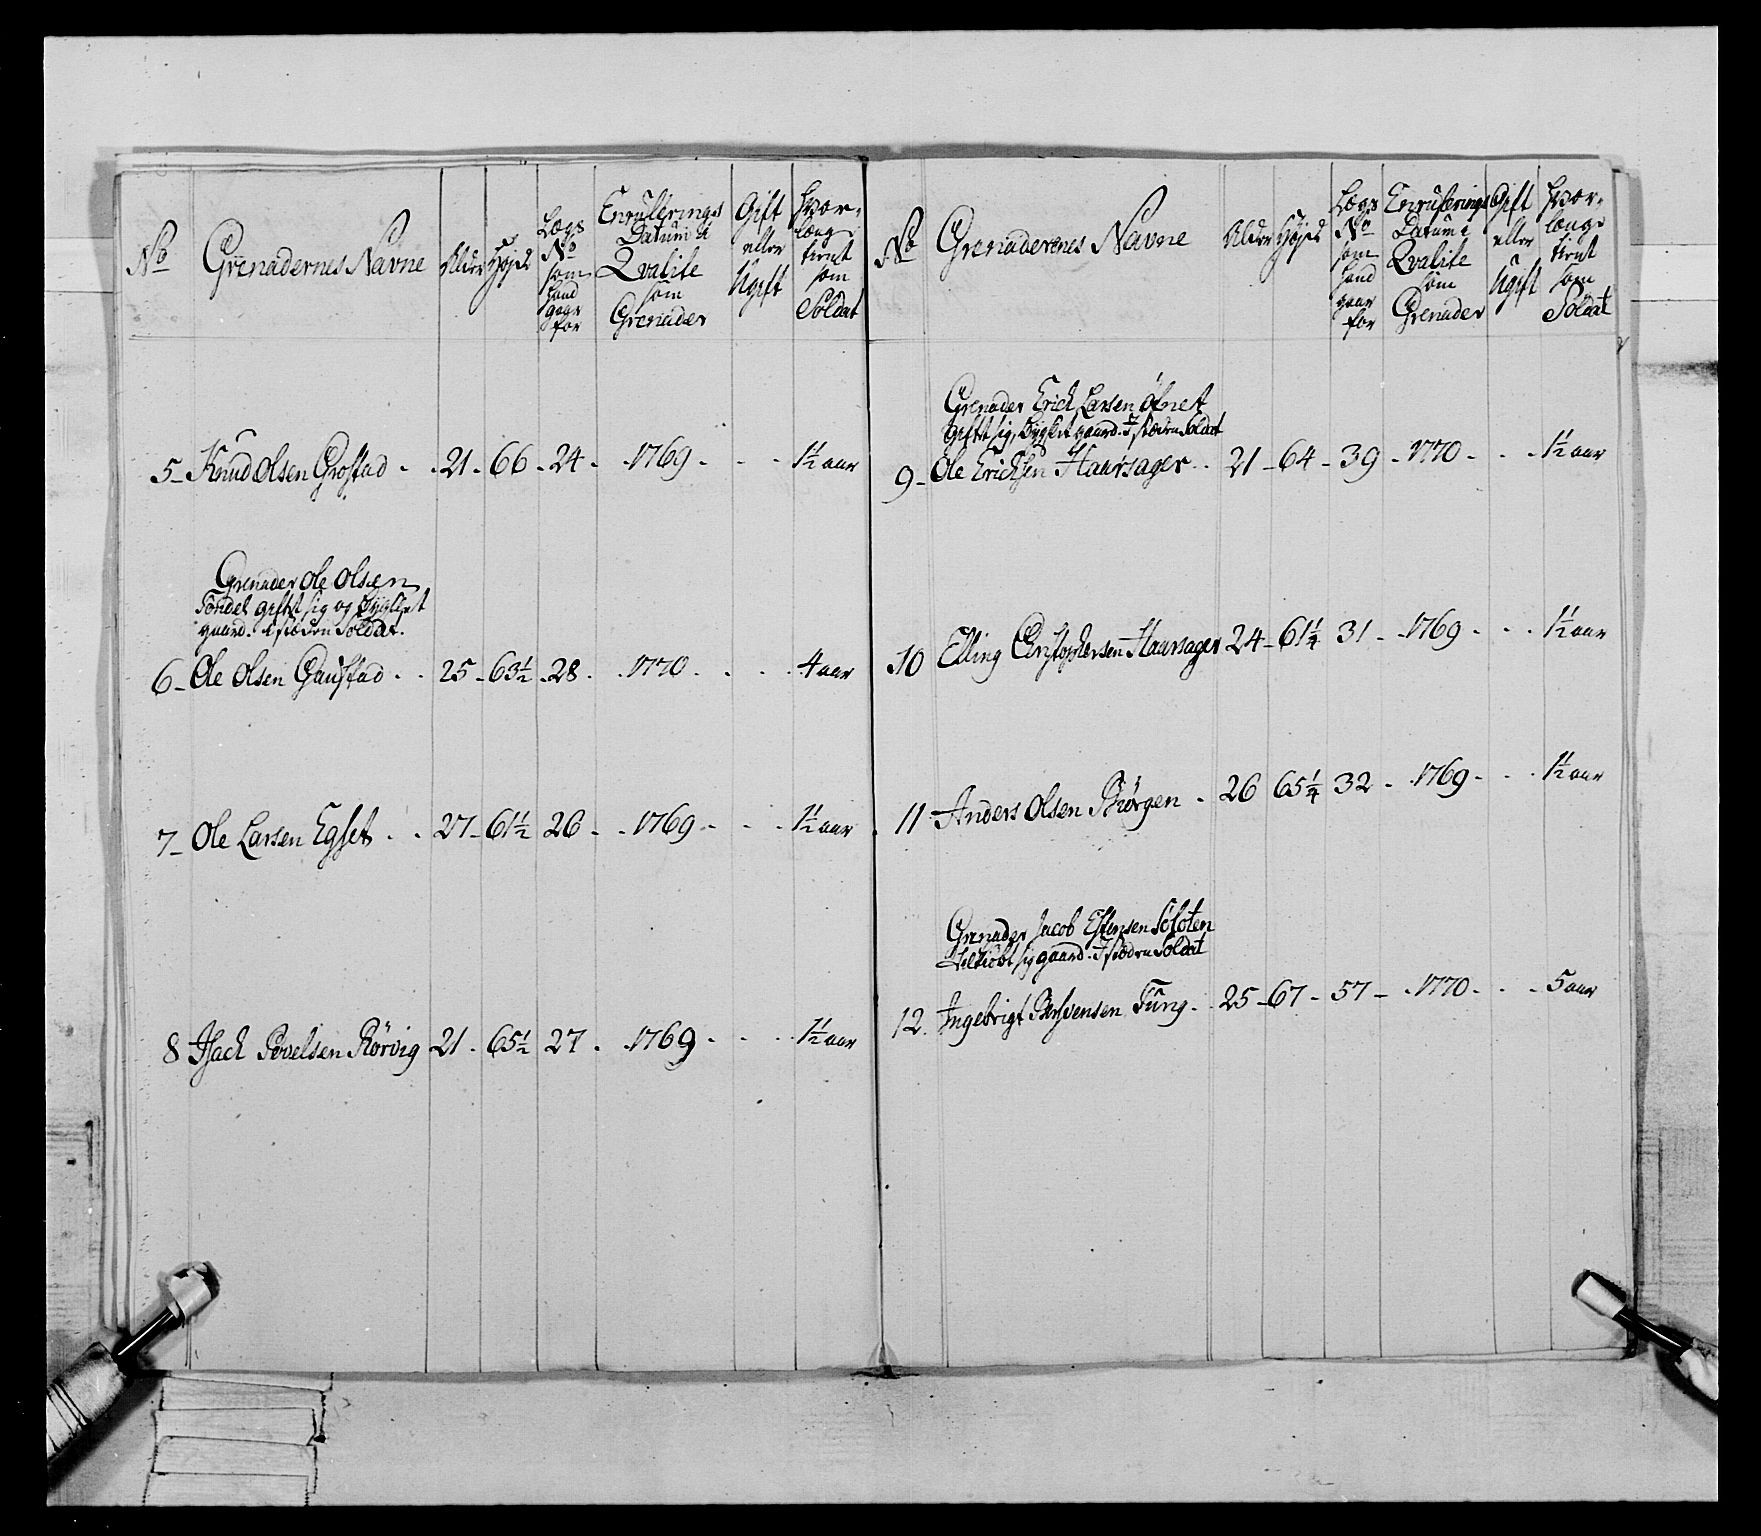 No
Grenadernes Navne
Alder
Højde
Lægs No som hand gaar for
Enrulerings Datum i Qvalite som Grenader
Gift eller Ugift
hvor længe tient som Soldat
5 - Knud Olsen Grostad - 21 - 66 - 24 - 1769 - - 1½ aar
Grenader Ole Olsen
Tondel giftet sig og bygslet
gaard. i stæden Soldat.
6 - Ole Olsen Gaustad - 25 - 63½ - 28 - 1770 - - 4 aar
7 - Ole Larsen Egset - 27 - 61½ 26 - 1769 - - 1½ aar
8 Isach Povelsen Rørvig 21 - 65½ 27 - 1769 - - 1½ aar
No
Grenaderenes Navne
Alder
Højde
Lægs No som hand gaar for
Enrulerings Datum i Qvalite som Grenader
Gift eller Ugift
hvor længe tient som Soldat
Grenader Erich Larsen Øfnet
giftet sig, bygslet gaard. I stæden Soldat
9 - Ole Erichsen Haarsager - 21 - 64 - 39 - 1770 - - 1½ aar
10 Elling Christophersen Haarsager 24 - 61¼ 31 - 1769 - - 1½ aar
11 Anders Olsen Biørgen - 26 65¼ 32 - 1769 - - 1½ aar
Grenader Jacob Estensen
sig gaard. I stæden Soldat
12 Ingebrigt Tung - 25 - 67 - 57 - 1770 - - 5 aar